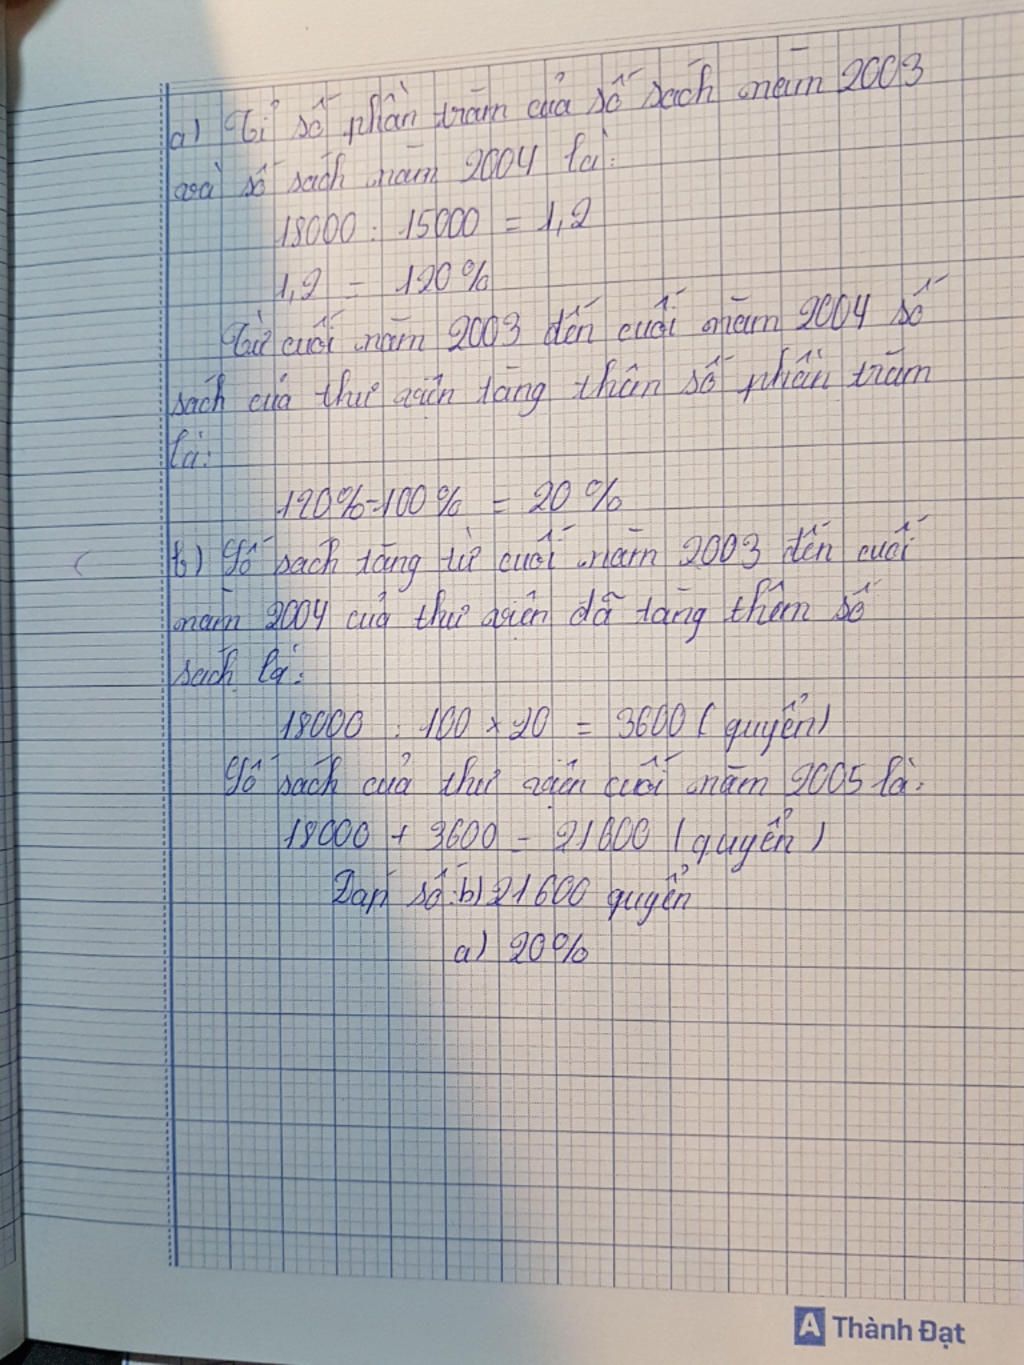 a) Tỉ số phần trăm của số sách năm 2003
và số sách năm 2004 là:
18000 : 15000 = 1,2
1,2 = 120%
Từ cuối năm 2003 đến cuối năm 2004 số
sách của thư viện tăng thên số phần trăm
là:
120%-100% = 20%
b) Số sách tăng từ cuối năm 2003 đến cuối
năm 2004 của thư viện đã tăng thêm số
sách là:
18000 : 100 x 20 = 3600 (quyển)
Số sách của thư viện cuối năm 2005 là:
18000 + 3600 = 21600 (quyển)
Đáp số: b) 21600 quyển
a) 20%
A Thành Đạt